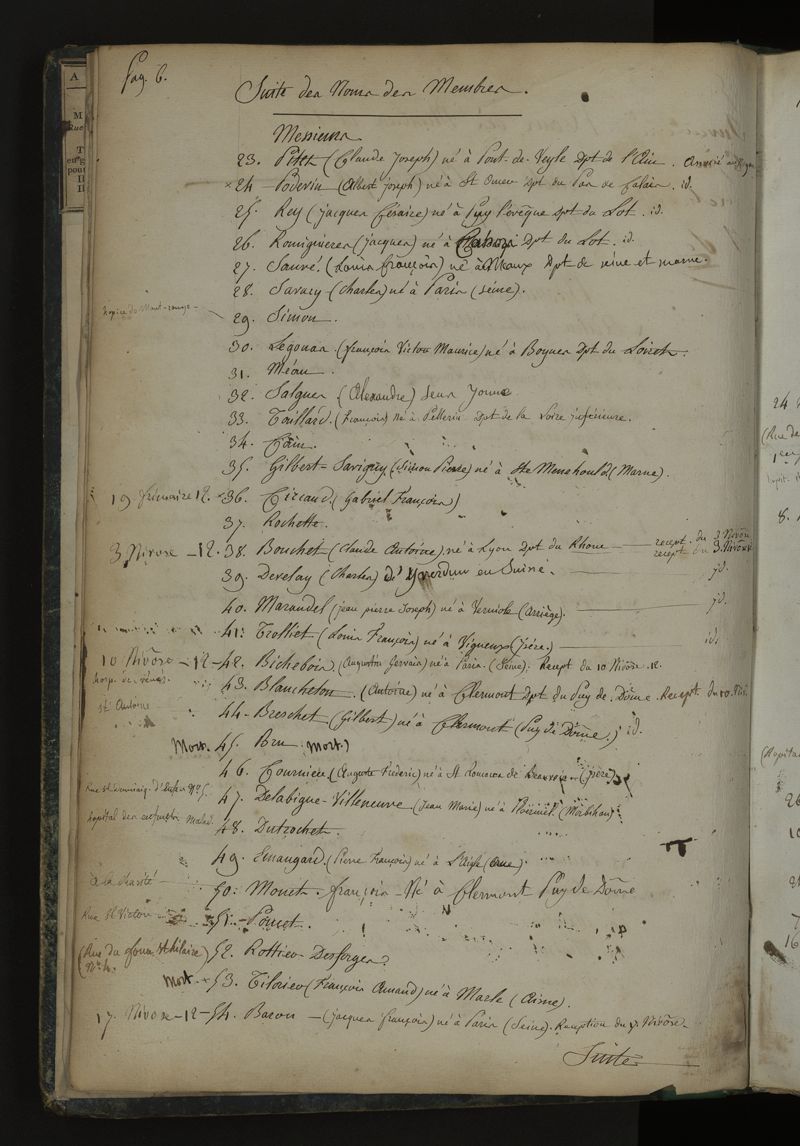 Pag. 6.
Suite des Noms des Membres.
Messieurs
23. Petet (Claude Joseph) né à Pont-de-Veyle Dpt de l'Ain.
× 24 Poderin (Albert joseph) né à St Omer Dpt du Pas de Calais. id.
25. Rey (jacques Césaire) né à Puy l'évêque Dpt du Lot. id.
26. Romiguieres (jacques) né à Cahors Dpt du Lot. id.
27. Sauvé. (Louis François) né à Meaux Dpt de seine et marne.
28. Savary (Charles) né à Paris (seine).
hospice du Mont-rouge - 29. Simon.
30. Legouas. (françois Victor Maurice) né à Boynes Dpt du Loiret.
31. Méau.
32. Salgues (Alexandre) Sens Yonne
33. Taillard. (françois) Né à Pellerin Dpt de la Loire inférieure.
34. Caïn.
35. Gilbert = Savigny (Simon Pierre) né à Ste Menehould (Marne).
19 frimaire 12. - 36. Circaud. (Gabriel François)
37. Rochette.
3 Nivose - 12. 38. Bouchet (Claude Antoine) né à Lyon Dpt du Rhone — recept. du 3 Nivôse
recept du 3. Nivôse
39. Develay (Charles) d'Yverdun en Suisse. — id.
40. Marandel (jean pierre Joseph) né à Verniole (Arriège). — id.
41. Trolliet (Louis François) né à Vigneux (Isère) — id.
10 Nivôse - 12 - 42. Bichebois (Augustin Gervais) né à Paris. (Seine). Recept du 10 Nivôse. 12.
43. Blancheton. (Antoine) né à Clermont Dpt du Puy de Dôme. Recept du 10
hosp. de vénér.
St Antoine 44. Breschet (Gilbert) né à Clermont (Puy de Dôme) id.
Mort. 45. Bru (mort.)
46. Tournier (Auguste Frederic) né à St Romain de (Isère)
Rue St Dominiq. d'Enfer No 5. 47. Delabigne-Villeneuve (Jean Marie) né à Ploërmel (Morbihan)
hopital des enfants Malad. 48. Dutrochet.
49. Emangard. (Pierre François) né à L'Aigle (Orne).
à la Charité 50. Mouet. françois - Né à Clermont Puy de Dôme
Rue St Victor 51. - Pouet.
(Rue du four St hilaire) 52. Rottier Desforges
No 4.
Mort. + 53. Tilorier (François Amand) né à Marle (Aisne).
17. Nivose - 12 - 54. Baron — (jacques françois) né à Paris (Seine). Reception du 17 Nivôse
Suite
A
M
Rue
24
(Rue de
8.
26
10
16